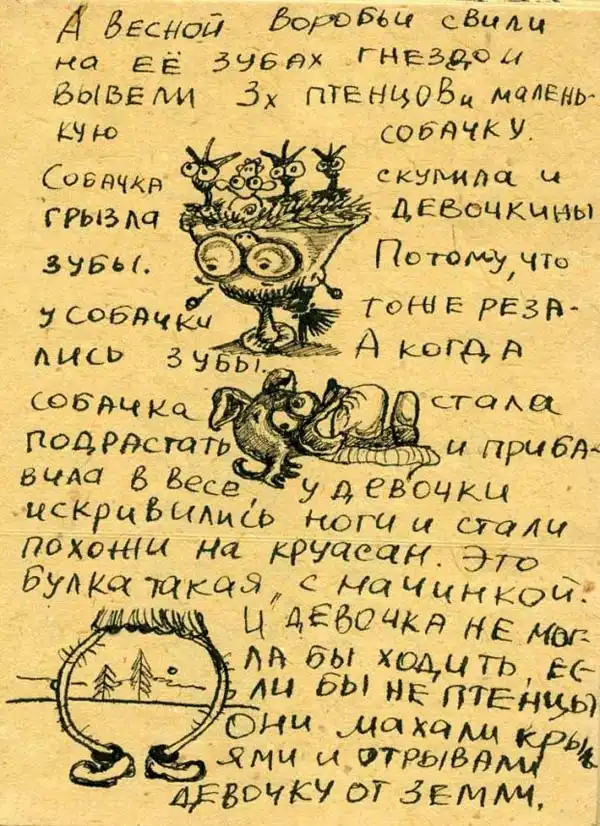 А весной воробьи свили
на её зубах гнездо и
вывели 3х птенцов и малень-
кую собачку.
Собачка скулила и
грызла девочкины
зубы. Потому, что
у собачки тоже реза-
лись зубы. А когда
собачка стала
подрастать и приба-
вила в весе, у девочки
искривились ноги и стали
похожи на круасан. Это
булка такая, с начинкой.
И девочка не мог-
ла бы ходить, ес-
ли бы не птенцы
они махали крыль
ями и отрывали
девочку от земли.